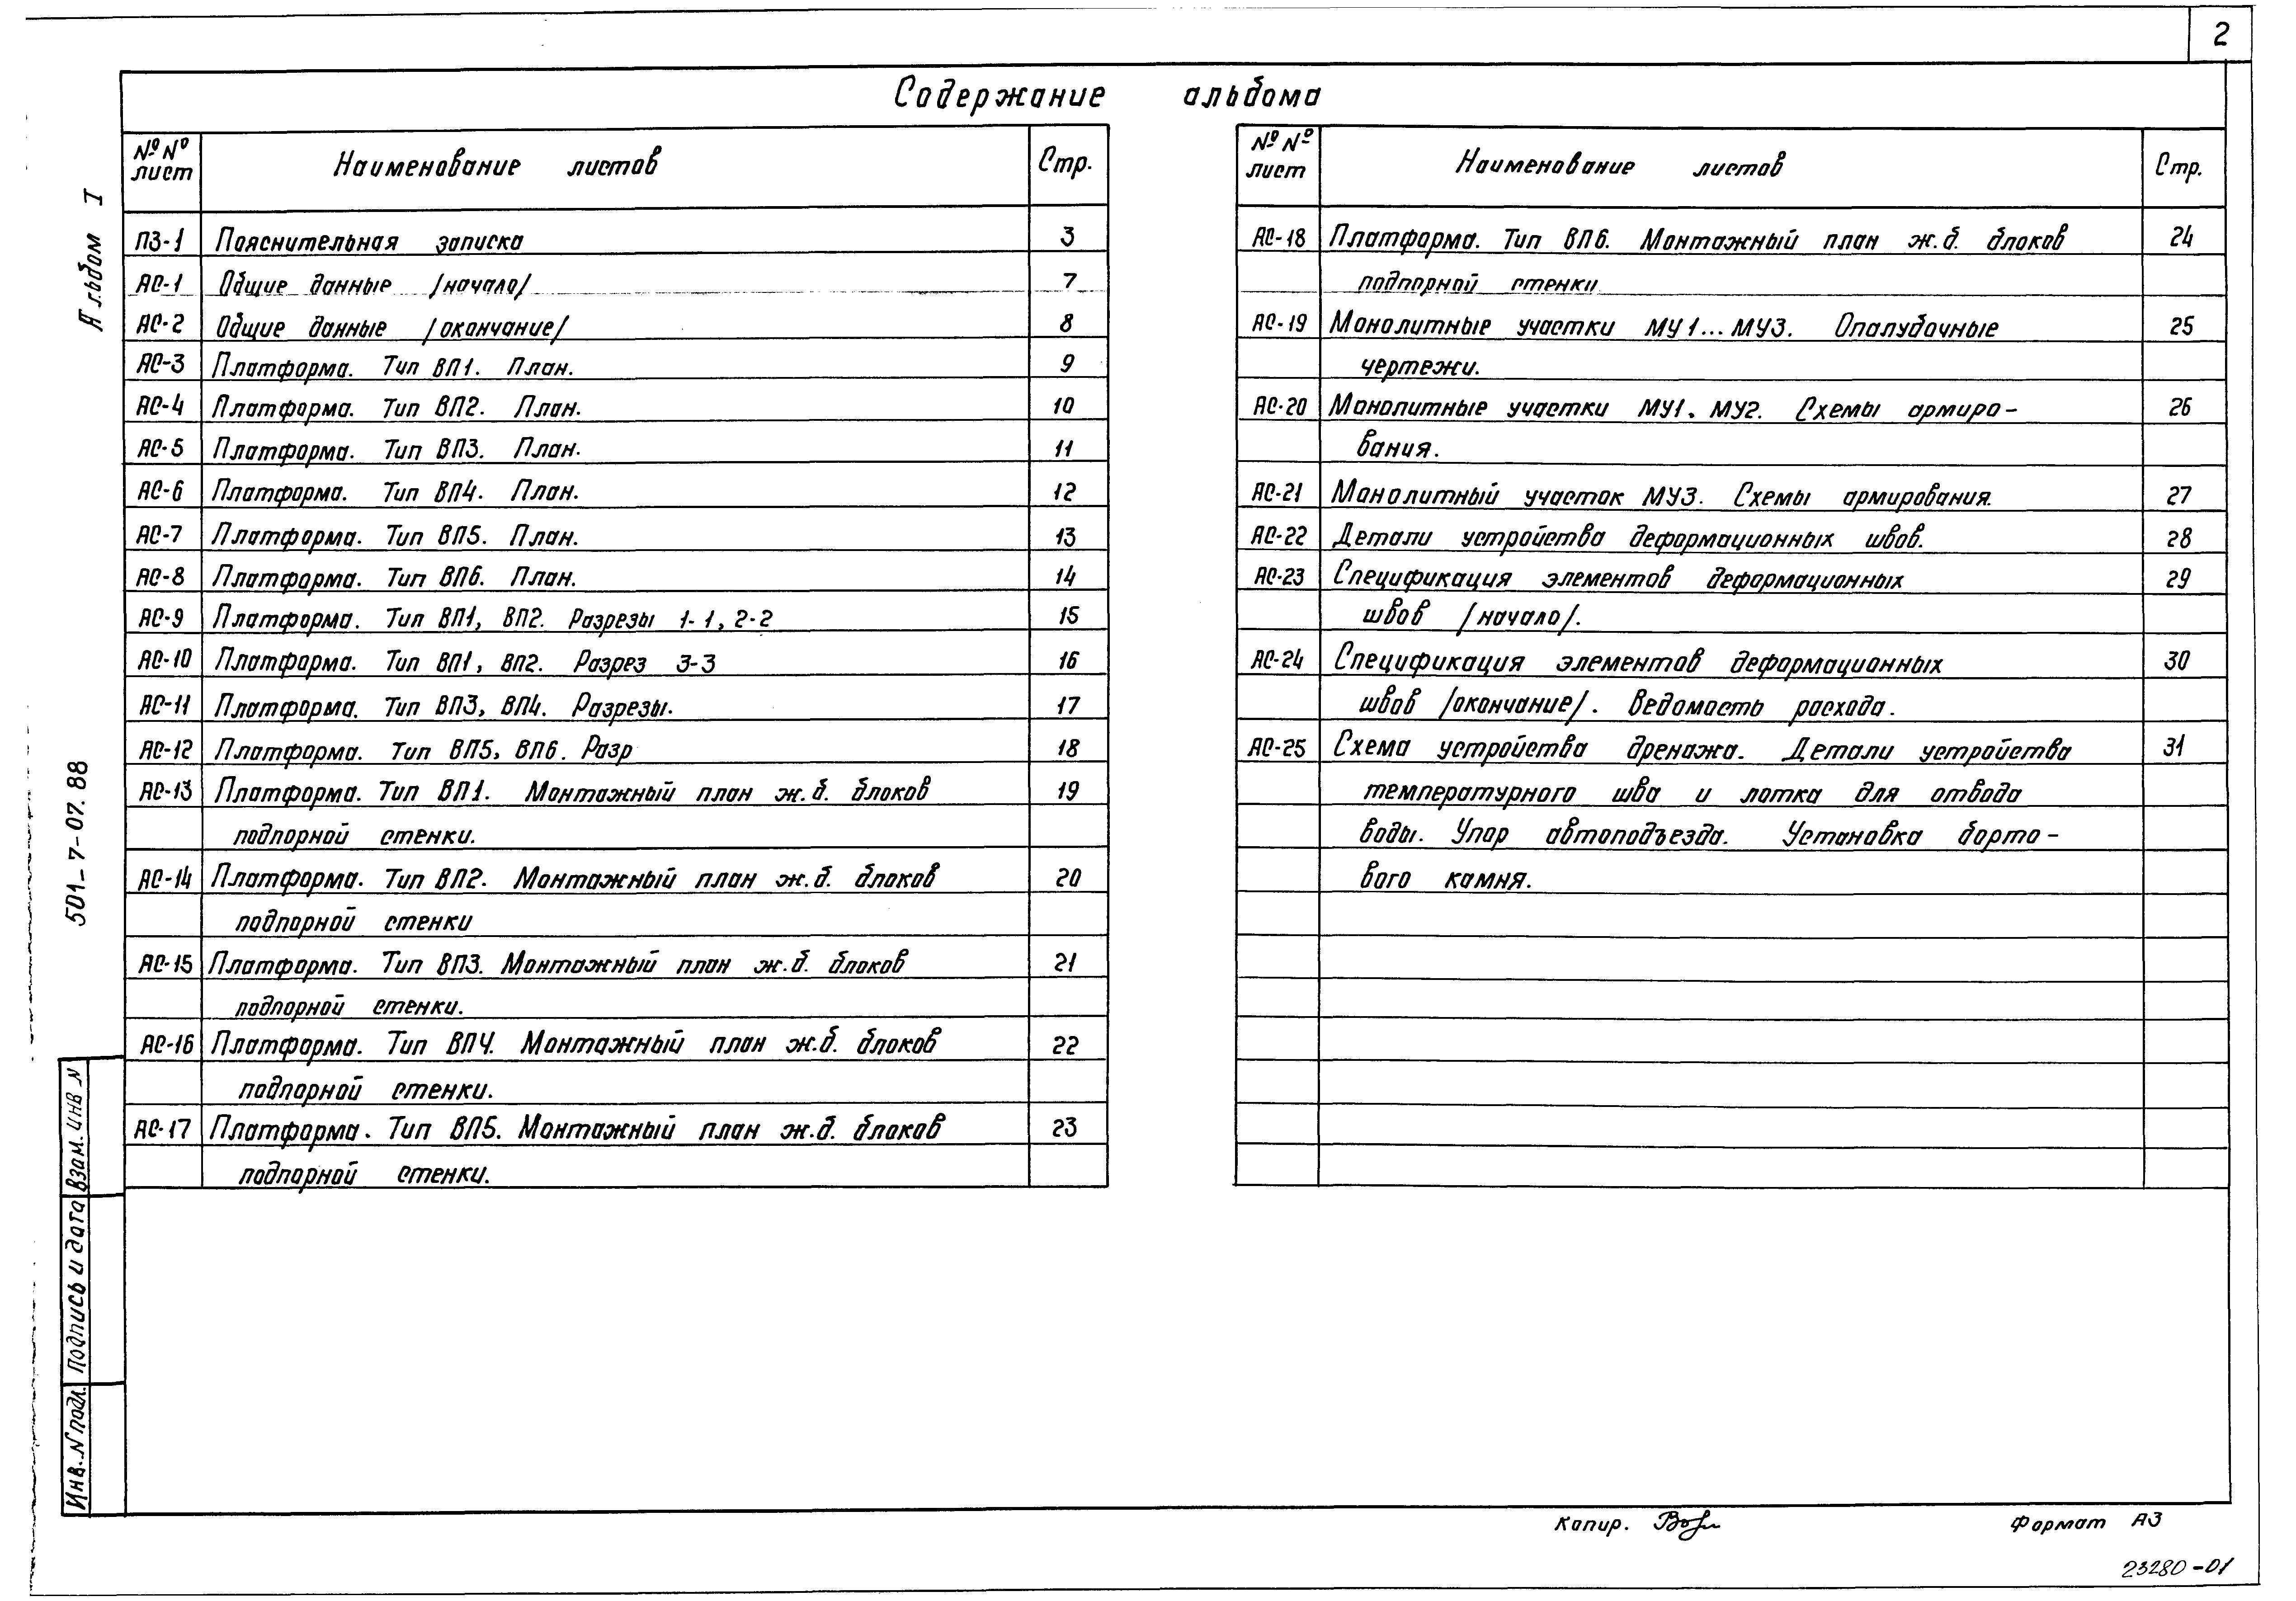 2
Содержание альбома
№№ лист Наименование листов Стр.
ПЗ-1 Пояснительная записка 3
АС-1 Общие данные /начало/ 7
АС-2 Общие данные /окончание/ 8
АС-3 Платформа. Тип ВП1. План. 9
АС-4 Платформа. Тип ВП2. План. 10
АС-5 Платформа. Тип ВП3. План. 11
АС-6 Платформа. Тип ВП4. План. 12
АС-7 Платформа. Тип ВП5. План. 13
АС-8 Платформа. Тип ВП6. План. 14
АС-9 Платформа. Тип ВП1, ВП2. Разрезы 1-1, 2-2 15
АС-10 Платформа. Тип ВП1, ВП2. Разрез 3-3 16
АС-11 Платформа. Тип ВП3, ВП4. Разрезы. 17
АС-12 Платформа. Тип ВП5, ВП6. Разр 18
АС-13 Платформа. Тип ВП1. Монтажный план ж.б. блоков 19
подпорной стенки.
АС-14 Платформа. Тип ВП2. Монтажный план ж.б. блоков 20
подпорной стенки
АС-15 Платформа. Тип ВП3. Монтажный план ж.б. блоков 21
подпорной стенки.
АС-16 Платформа. Тип ВП4. Монтажный план ж.б. блоков 22
подпорной стенки.
АС-17 Платформа. Тип ВП5. Монтажный план ж.б. блоков 23
подпорной стенки.
№№ лист Наименование листов Стр.
АС-18 Платформа. Тип ВП6. Монтажный план ж.б. блоков 24
подпорной стенки
АС-19 Монолитные участки МУ1...МУ3. Опалубочные 25
чертежи.
АС-20 Монолитные участки МУ1, МУ2. Схемы армиро- 26
вания.
АС-21 Монолитный участок МУ3. Схемы армирования. 27
АС-22 Детали устройства деформационных швов. 28
АС-23 Спецификация элементов деформационных 29
швов /начало/.
АС-24 Спецификация элементов деформационных 30
швов /окончание/. Ведомость расхода.
АС-25 Схема устройства дренажа. Детали устройства 31
температурного шва и лотка для отвода
воды. Упор автоподъезда. Установка борто-
вого камня.
Альбом I
501-7-07.88
Взам. инв N
Подпись и дата
Инв. N подл.
Копир.
Формат А3
23280-01